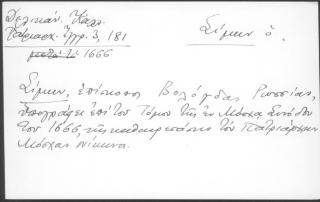 Δελικάν. Καλλ.
Πατριαρχ. Ἔγγρ. 3, 181
μετὰ τὸ 1666
Σίμων ὁ.
Σίμων, ἐπίσκοπος Βολόγδας Ρωσσίας,
ὑπογράφει ἐπὶ τοῦ Τόμου τῆς ἐν Μόσχᾳ Συνόδου
τοῦ 1666, τῆς καθαιρεσάσης τὸν Πατριάρχην
Μόσχας Νίκωνα.